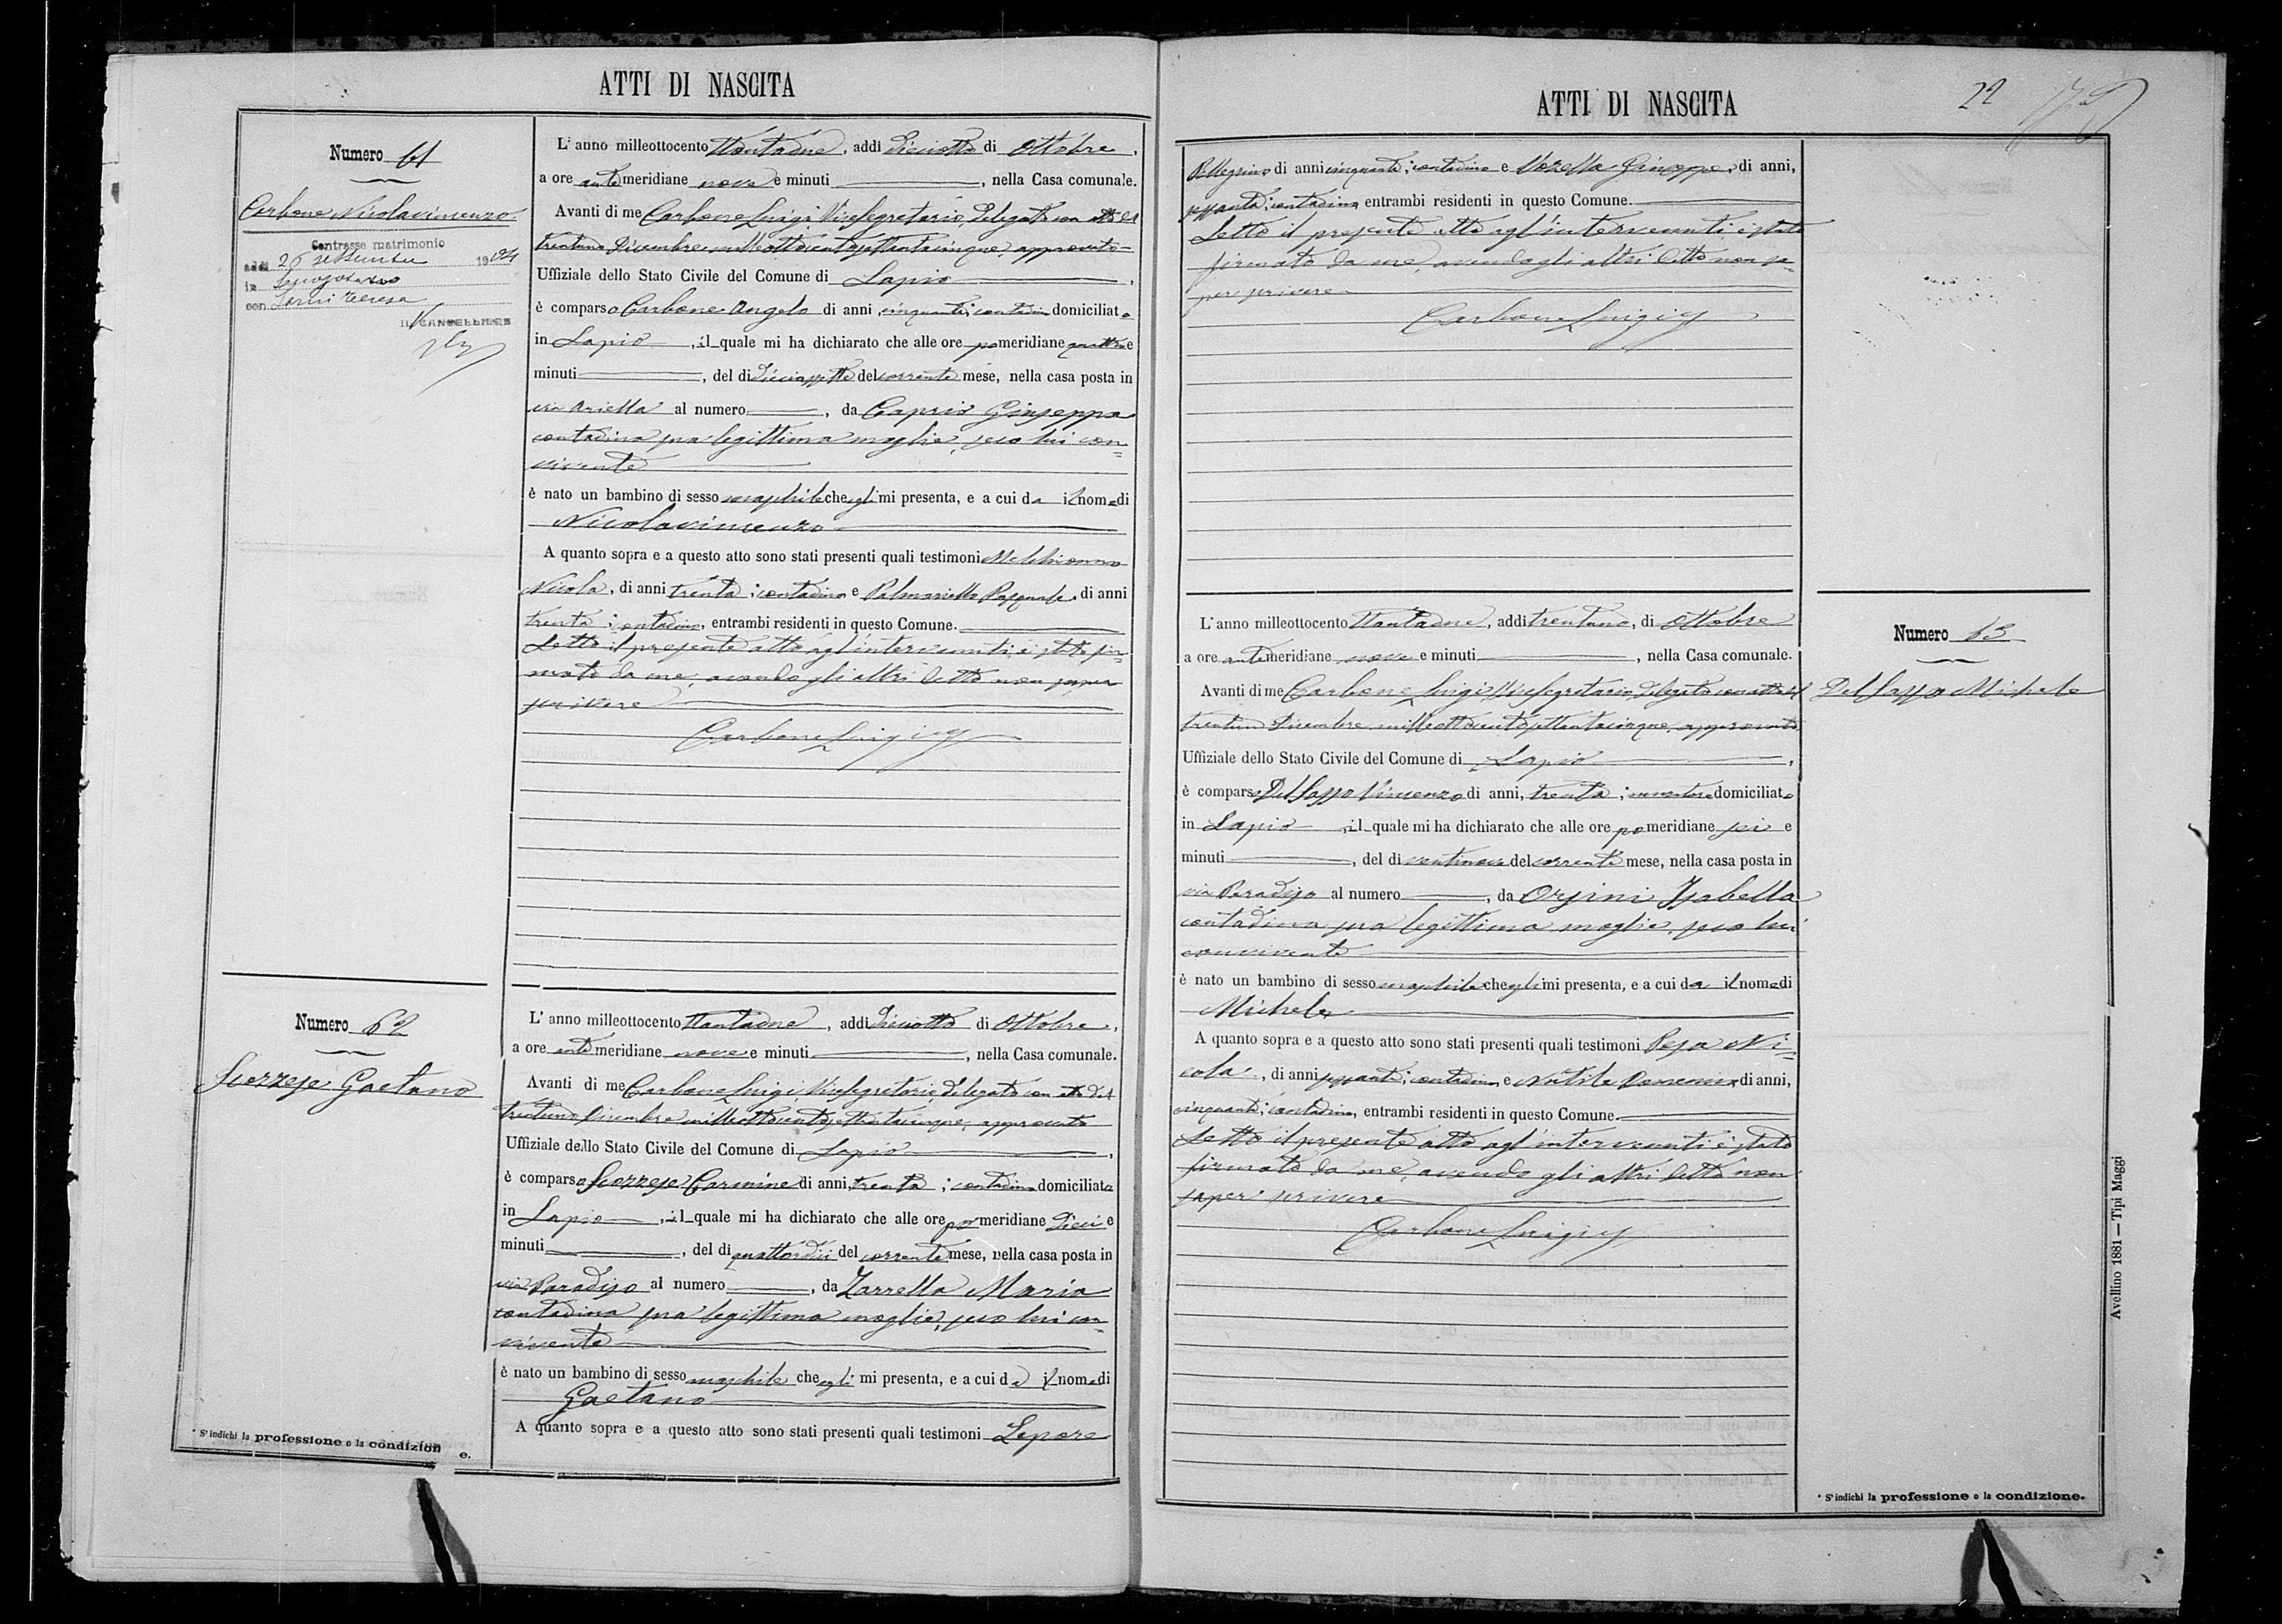 ATTI DI NASCITA
Numero 61
Carbone Nicolavincenzo
Contrasse matrimonio
addi 26 settembre 19
in
con Teresa
IL CANCELLIERE
L'anno milleottocento ttantadue, addì dieciotto di Ottobre,
a ore antemeridiane nove e minuti , nella Casa comunale.
Avanti di me Carbone Luigi Vicesegretario, delegato con atto del
trentuno Dicembre milleottocentosettantacinque, approvato
Uffiziale dello Stato Civile del Comune di Lapio,
è comparso Carbone Angelo di anni cinquanta; contadino domiciliato
in Lapio, il quale mi ha dichiarato che alle ore pomeridiane quattro e
minuti , del dì dieciassette del corrente mese, nella casa posta in
via Ariella al numero , da Caprio Giuseppa
contadina sua legittima moglie, seco lui con=
vivente
è nato un bambino di sesso maschile che egli mi presenta, e a cui da il nome di
Nicolavincenzo
A quanto sopra e a questo atto sono stati presenti quali testimoni Melchionno
Nicola, di anni trenta; contadino e Palmariello Pasquale, di anni
trenta; contadino, entrambi residenti in questo Comune.
Letto il presente atto agl'intervenuti, è stato fir=
mato da me, avendo gli altri detto non saper
scrivere
Carbone Luigi
Numero 62
Scozzese Gaetano
L'anno milleottocento ttantadue, addì dieciotto di Ottobre,
a ore antemeridiane nove e minuti , nella Casa comunale.
Avanti di me Carbone Luigi, Vicesegretario, delegato con atto del
trentuno Dicembre milleottocentosettantacinque, approvato
Uffiziale dello Stato Civile del Comune di Lapio,
è comparso Scozzese Carmine di anni, trenta; contadino domiciliato
in Lapio, il quale mi ha dichiarato che alle ore pomeridiane dieci e
minuti , del dì quattordici del corrente mese, nella casa posta in
via Paradiso al numero , da Zarrella Maria
contadina sua legittima moglie, seco lui con=
vivente
è nato un bambino di sesso maschile che egli mi presenta, e a cui da il nome di
Gaetano
A quanto sopra e a questo atto sono stati presenti quali testimoni Lepore
* S'indichi la professione o la condizione.
ATTI DI NASCITA
22
Pellegrino di anni cinquanta; contadino e Vozella Giuseppe, di anni,
sessanta; contadino entrambi residenti in questo Comune.
Letto il presente atto agl'intervenuti è stato
firmato da me, avendo gli altri detto non sa=
per scrivere
Carbone Luigi
Numero 63
Del Sasso Michele
L'anno milleottocento ttantadue, addì trentuno, di Ottobre
a ore antemeridiane nove e minuti , nella Casa comunale.
Avanti di me Carbone Luigi, Vicesegretario, delegato con atto del
trentuno Dicembre milleottocentosettantacinque, approvato
Uffiziale dello Stato Civile del Comune di Lapio,
è comparso Del Sasso Vincenzo di anni, trenta; domiciliato
in Lapio, il quale mi ha dichiarato che alle ore pomeridiane sei e
minuti , del dì ventinove del corrente mese, nella casa posta in
via Paradiso al numero , da Orsini Isabella
contadina sua legittima moglie, seco lui
convivente
è nato un bambino di sesso maschile che egli mi presenta, e a cui da il nome di
Michele
A quanto sopra e a questo atto sono stati presenti quali testimoni Pesa Ni=
cola, di anni sessanta; contadino, e Natile di anni,
cinquanta; contadino, entrambi residenti in questo Comune.
Letto il presente atto agl'intervenuti è stato
firmato da me, avendo gli altri detto non
saper scrivere
Carbone Luigi
Avellino 1881 — Tipi Maggi
* S'indichi la professione o la condizione.